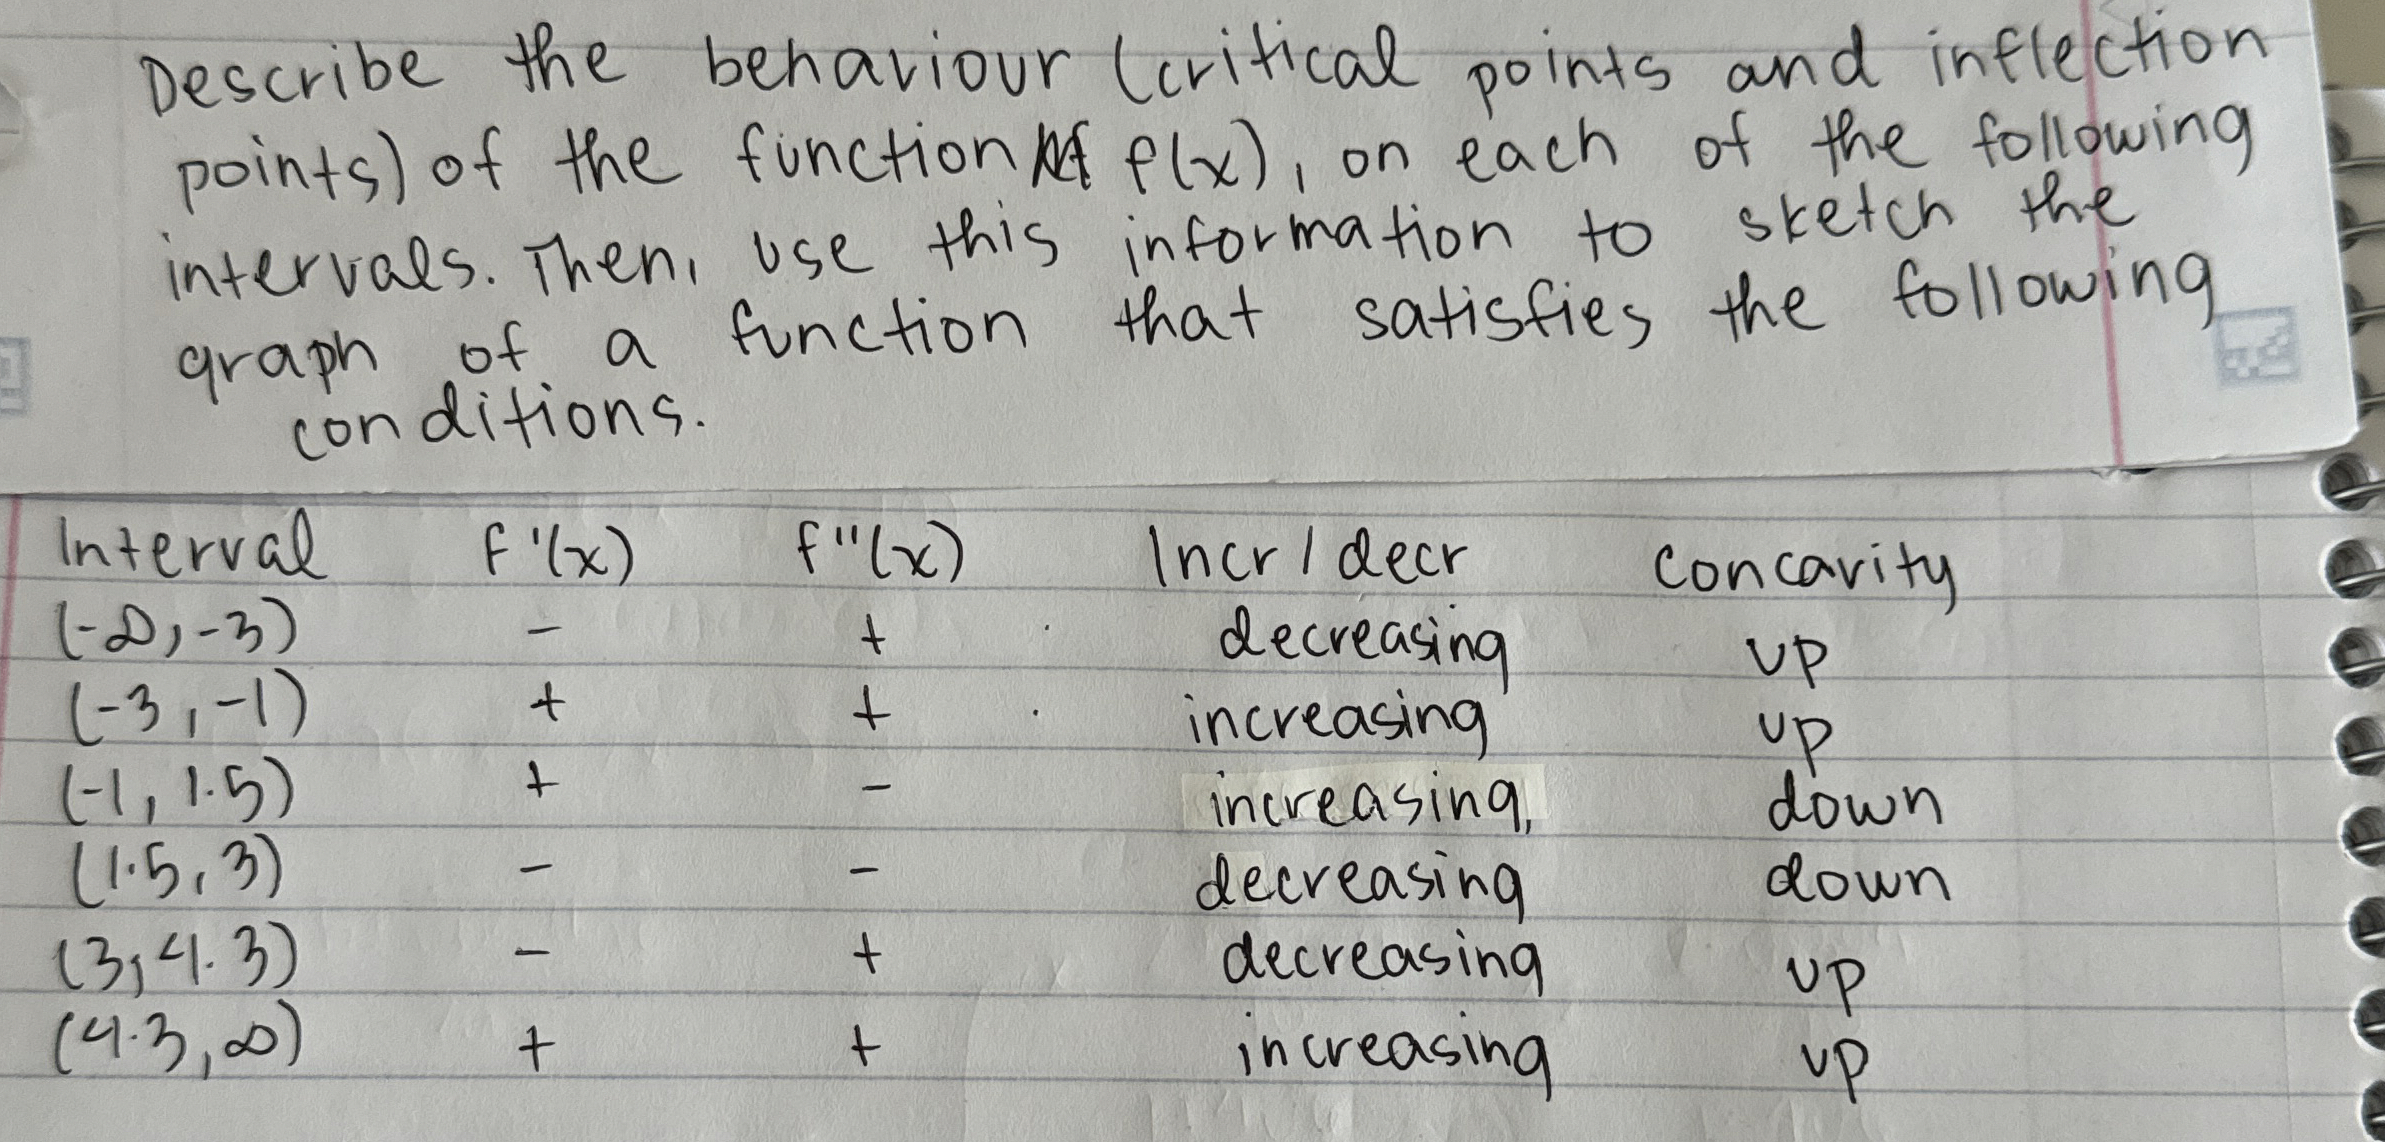 Describe the behaviour (critical points and inflection
points) of the function f(x), on each of the following
intervals. Then, use this information to sketch the
graph of a function that satisfies the following
conditions.
Interval f'(x) f"(x) Incr/decr concavity
(-∞, -3) - + decreasing up
(-3, -1) + + increasing up
(-1, 1.5) + - increasing, down
(1.5, 3) - - decreasing down
(3, 4.3) - + decreasing up
(4.3, ∞) + + increasing up